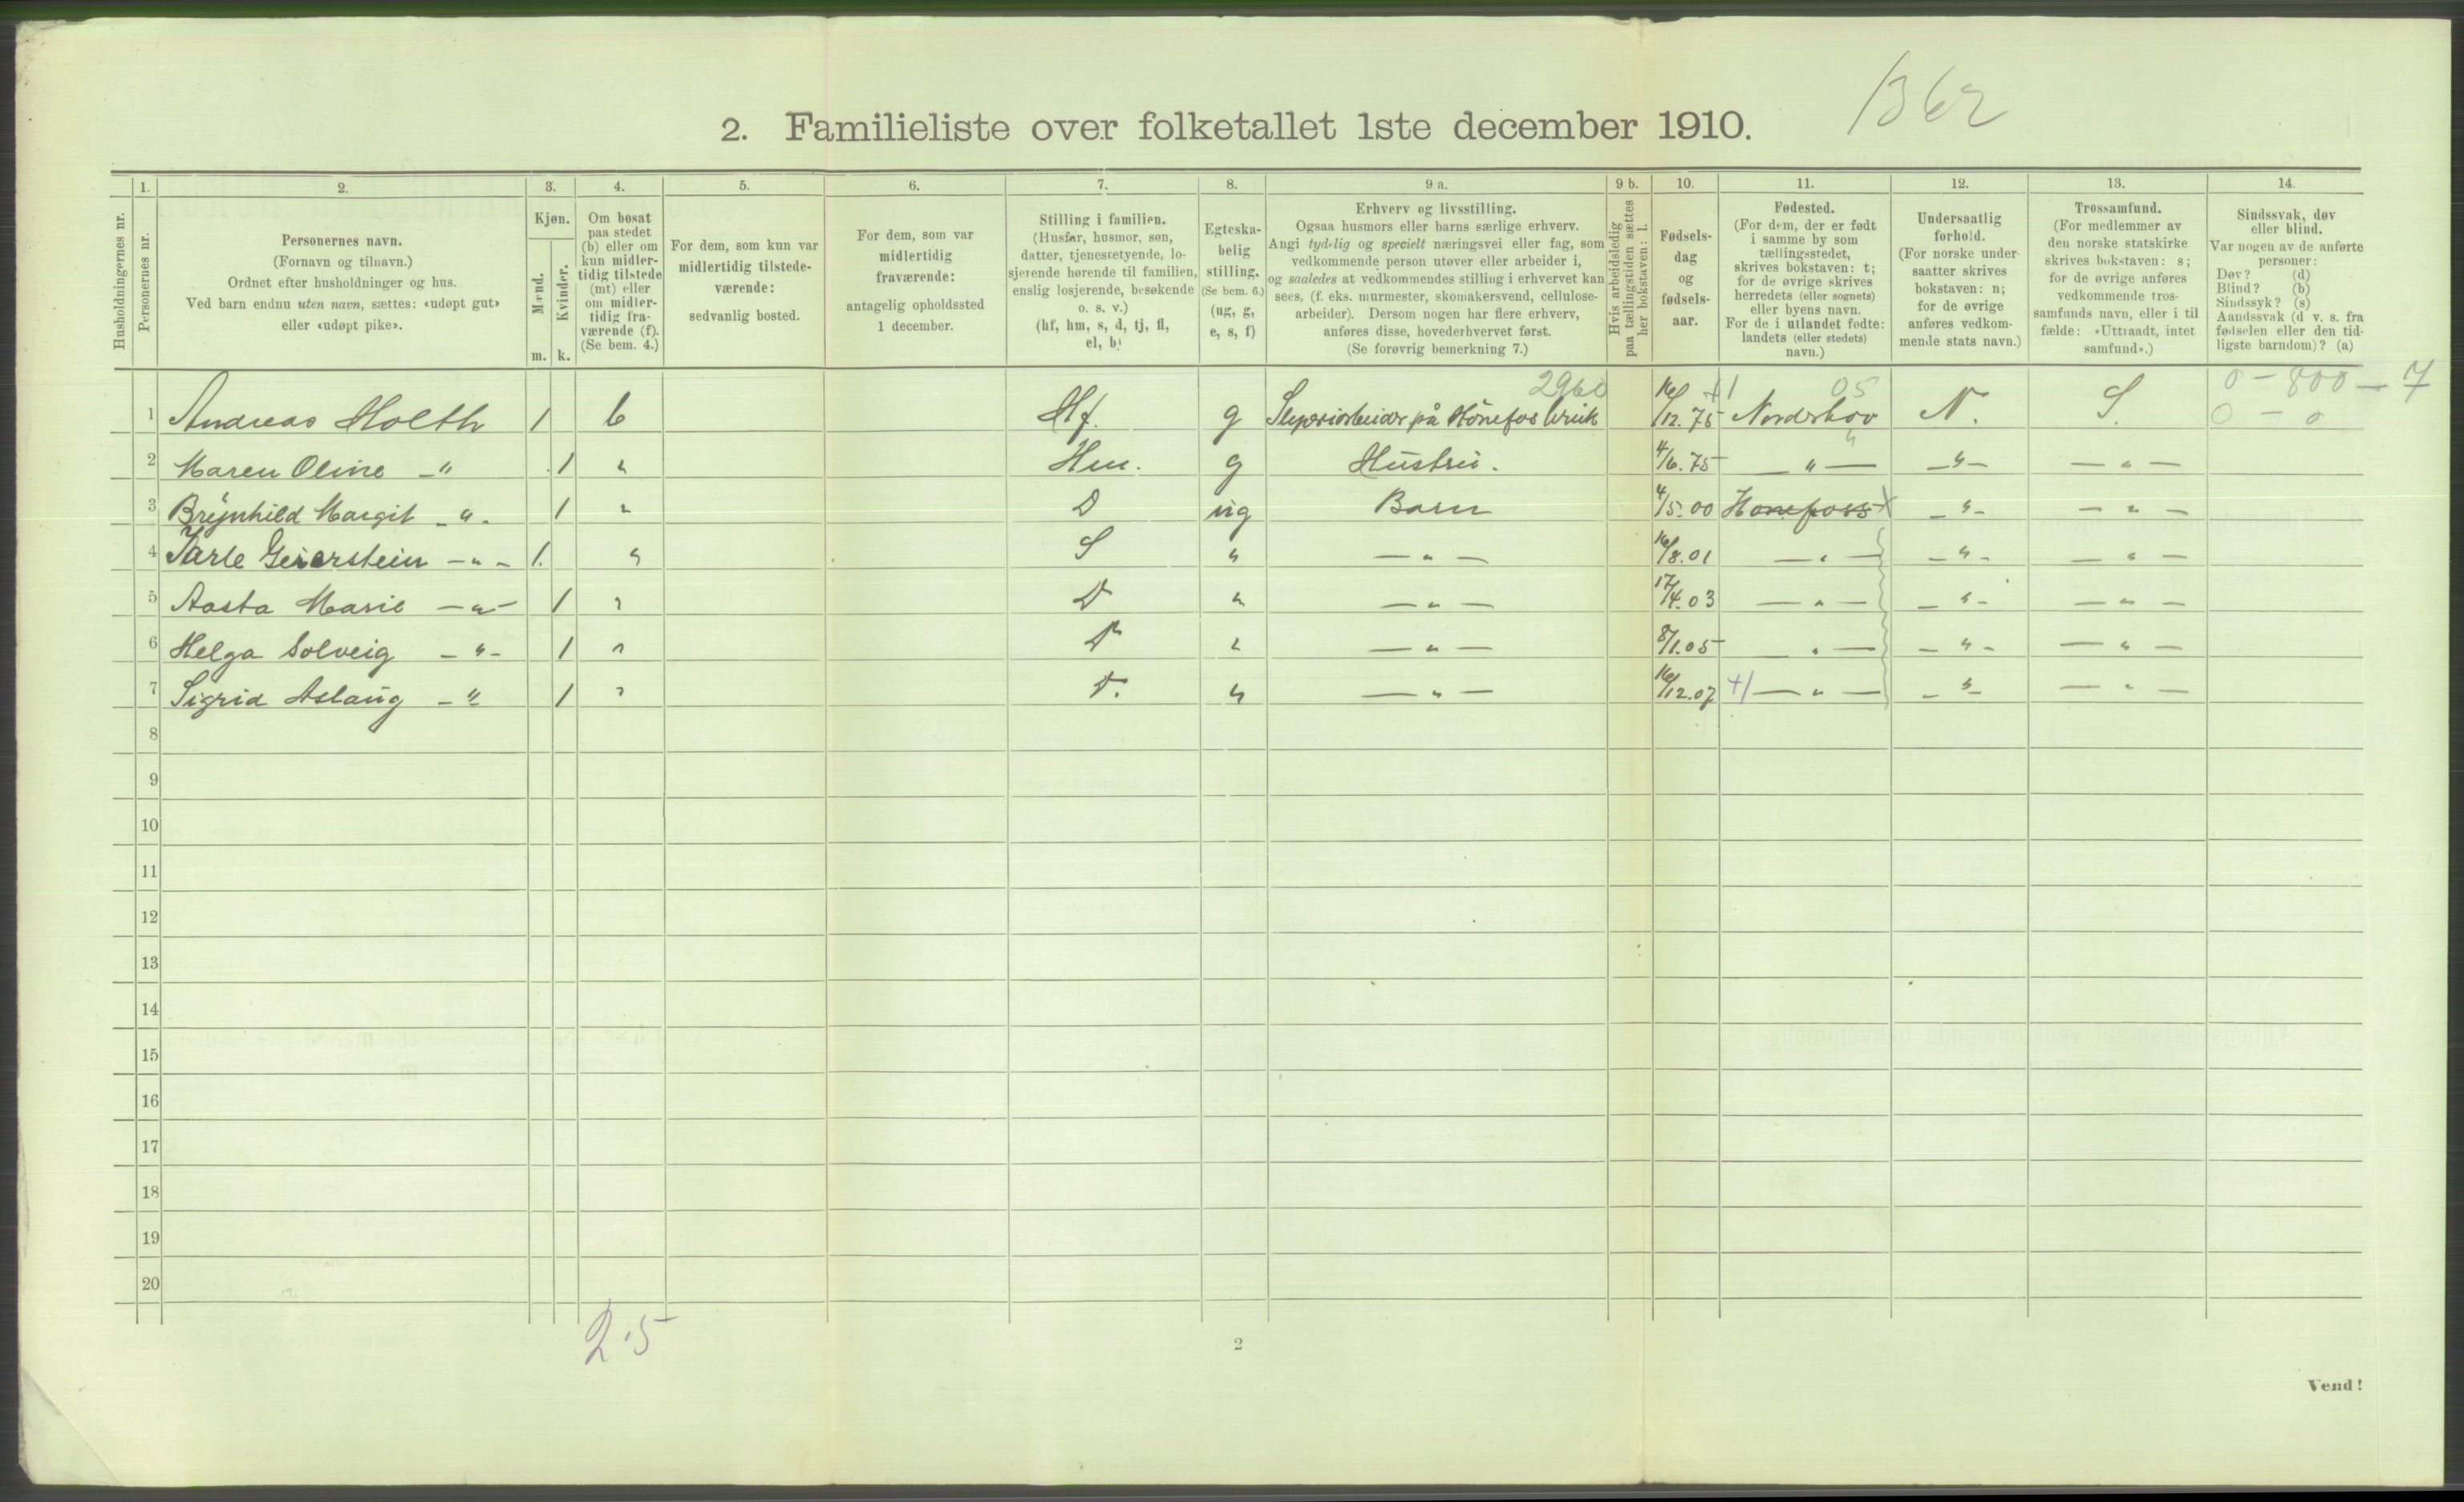 1362
2. Familieliste over folketallet 1ste december 1910.
1. 2. 3. 4. 5. 6. 7. 8. 9 a. 9 b. 10. 11. 12. 13. 14.
Husholdningernes nr.
Personernes nr.
Personernes navn.
(Fornavn og tilnavn.)
Ordnet efter husholdninger og hus.
Ved barn endnu uten navn, sættes: «udøpt gut»
eller «udøpt pike».
Kjøn.
Mænd.
Kvinder.
m. k.
Om bosat
paa stedet
(b) eller om
kun midler-
tidig tilstede
(mt) eller
om midler-
tidig fra-
værende (f).
(Se bem. 4.)
For dem, som kun var
midlertidig tilstede-
værende:
sedvanlig bosted.
For dem, som var
midlertidig
fraværende:
antagelig opholdssted
1 december.
Stilling i familien.
(Husfar, husmor, søn,
datter, tjenestetyende, lo-
sjerende hørende til familien,
enslig losjerende, besøkende
o. s. v.)
(hf, hm, s, d, tj, fl,
el, b)
Egteska-
belig
stilling.
(Se bem. 6.)
(ug, g,
e, s, f)
Erhverv og livsstilling.
Ogsaa husmors eller barns særlige erhverv.
Angi tydelig og specielt næringsvei eller fag, som
vedkommende person utøver eller arbeider i,
og saaledes at vedkommendes stilling i erhvervet kan
sees, (f. eks. murmester, skomakersvend, cellulose-
arbeider). Dersom nogen har flere erhverv,
anføres disse, hovederhvervet først.
(Se forøvrig bemerkning 7.)
Hvis arbeidsledig
paa tællingstiden sættes
her bokstaven: l.
Fødsels-
dag
og
fødsels-
aar.
Fødested.
(For dem, der er født
i samme by som
tællingsstedet,
skrives bokstaven: t;
for de øvrige skrives
herredets (eller sognets)
eller byens navn.
For de i utlandet fødte:
landets (eller stedets)
navn.)
Undersaatlig
forhold.
(For norske under-
saatter skrives
bokstaven: n;
for de øvrige
anføres vedkom-
mende stats navn.)
Trossamfund.
(For medlemmer av
den norske statskirke
skrives bokstaven: s;
for de øvrige anføres
vedkommende tros-
samfunds navn, eller i til
fælde: «Uttraadt, intet
samfund».)
Sindssvak, døv
eller blind.
Var nogen av de anførte
personer:
Døv? (d)
Blind? (b)
Sindssyk? (s)
Aandssvak (d v. s. fra
fødselen eller den tid-
ligste barndom)? (a)
2960 +1 05 0 – 800 – 7
1 Andreas Holth 1 b Hf. g Sliperiarbeider på Hönefos bruk 16/12.75 Norderhov N. S. 0 – 0
2 Maren Oline – " 1 " Hm. g Hustru. 4/6.75 — " — – " – — " —
3 Brynhild Margit – " – 1 " D ug Barn 4/5.00 Honefoss x – " – — " —
4 Jarle Geierstein – " – 1. " S " — " — 16/8.01 — " — – " – — " —
5 Aasta Marie – " – 1 " D " — " — 17/4.03 — " — – " – — " —
6 Helga Solveig – " – 1 " D " — " — 8/1.05 — " — – " – — " —
7 Sigrid Aslaug – " 1 " D. " — " — 16/12.07 +1 — " — – " – — " —
8
9
10
11
12
13
14
15
16
17
18
19
20
2.5
2
Vend!